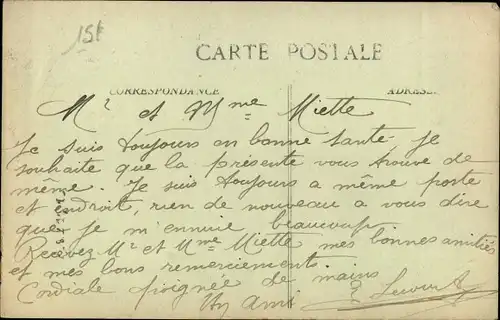 15f
CARTE POSTALE
CORRESPONDANCE
ADRESSE
Mr et Mme Miette
Je suis toujours en bonne santé, je
souhaite que la présente vous trouve de
même. Je suis toujours a même poste
et endroit, rien de nouveau a vous dire
que je m'ennuie beaucoup.
Recevez Mr et Mme Miette mes bonnes amitiés
et mes bons remerciements.
Cordiale poignée de mains
Un ami